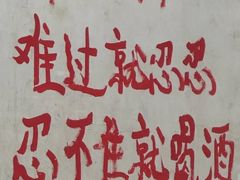 难过就忍忍
忍不住就喝酒